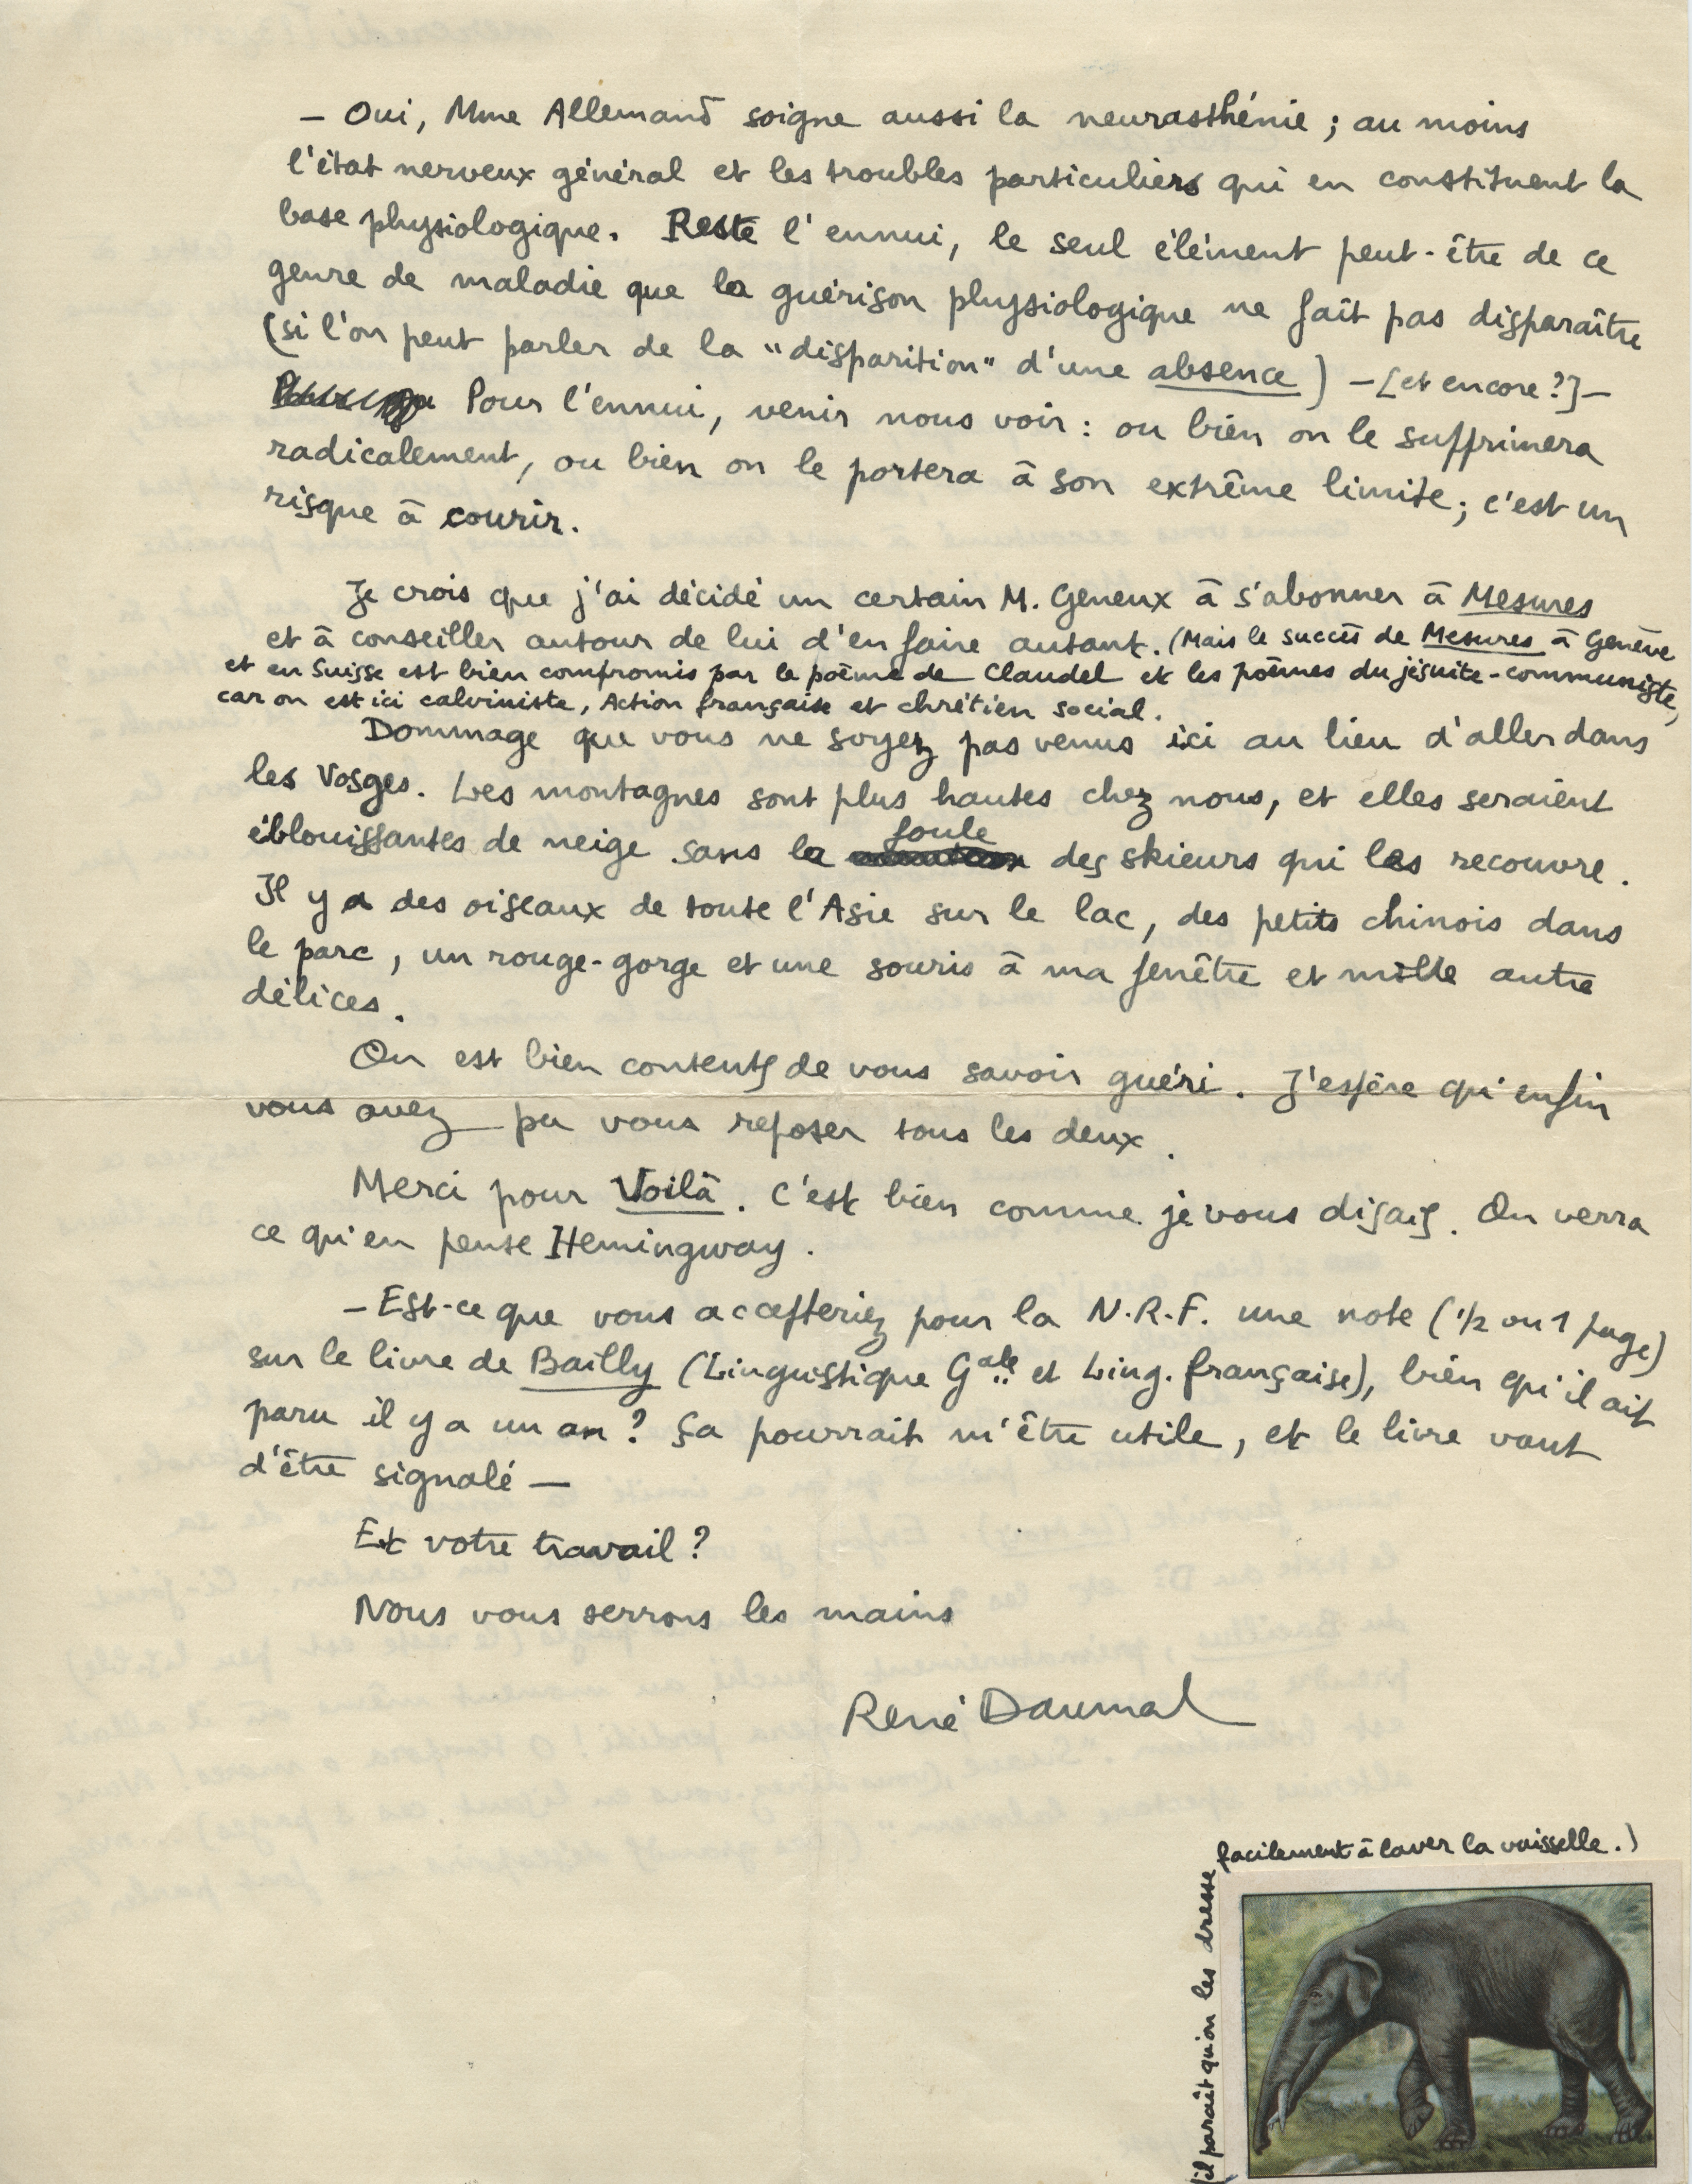 — Oui, Mme Allemand soigne aussi la neurasthénie ; au moins
l'état nerveux général et les troubles particuliers qui en constituent la
base physiologique. Reste l'ennui, le seul élément peut-être de ce
genre de maladie que la guérison physiologique ne fait pas disparaître
(si l'on peut parler de la "disparition" d'une absence) — [et encore ?] —
Pour l'ennui, venir nous voir : ou bien on le supprimera
radicalement, ou bien on le portera à son extrême limite ; c'est un
risque à courir.
Je crois que j'ai décidé un certain M. Geneux à s'abonner à Mesures
et à conseiller autour de lui d'en faire autant. (Mais le succès de Mesures à Genève
et en Suisse est bien compromis par le poème de Claudel et les poèmes du jésuite-communiste,
car on est ici calviniste, Action française et chrétien social.
Dommage que vous ne soyez pas venus ici au lieu d'aller dans
les Vosges. Les montagnes sont plus hautes chez nous, et elles seraient
éblouissantes de neige sans la foule des skieurs qui les recouvre.
Il y a des oiseaux de toute l'Asie sur le lac, des petits chinois dans
le parc, un rouge-gorge et une souris à ma fenêtre et mille autre
délices.
On est bien contents de vous savoir guéri. J'espère qu'enfin
vous avez pu vous reposer tous les deux.
Merci pour Voilà. C'est bien comme je vous disais. On verra
ce qu'en pense Hemingway.
— Est-ce que vous accepteriez pour la N.R.F. une note (1/2 ou 1 page)
sur le livre de Bailly (Linguistique Gale et Ling. française), bien qu'il ait
paru il y a un an ? Ça pourrait m'être utile, et le livre vaut
d'être signalé —
Et votre travail ?
Nous vous serrons les mains
René Daumal
(il paraît qu'on les dresse
facilement à laver la vaisselle.)